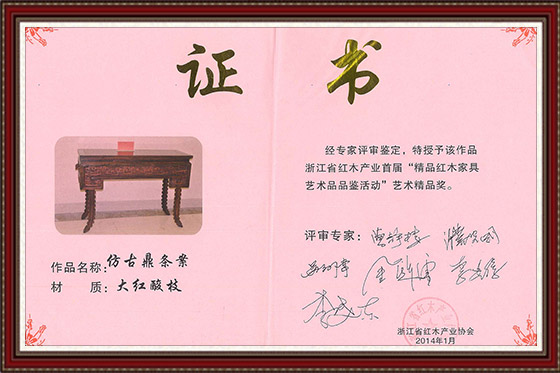 证书
作品名称:仿古鼎条案
材 质:大红酸枝
经专家评审鉴定,特授予该作品
浙江省红木产业首届“精品红木家具
艺术品品鉴活动”艺术精品奖。
评审专家:
浙江省红木产业协会
2014年1月